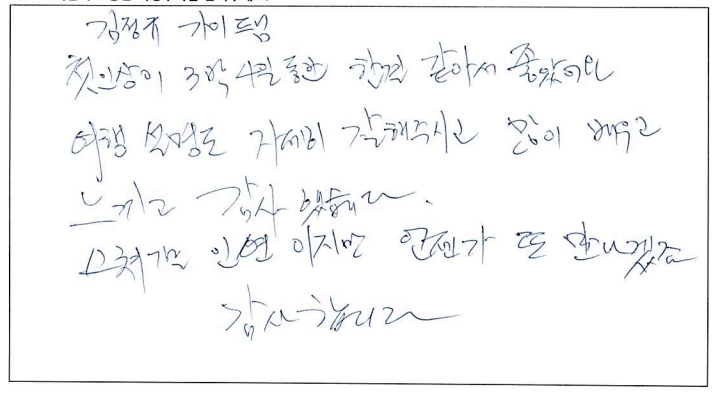 김정규 가이드님
첫인상이 3박 4일 동안 한결 같아서 좋았어요
여행 설명도 자세히 잘해주시고 많이 배우고
느끼고 감사 했습니다.
스쳐가는 인연 이지만 언젠가 또 만나겠죠
감사합니다